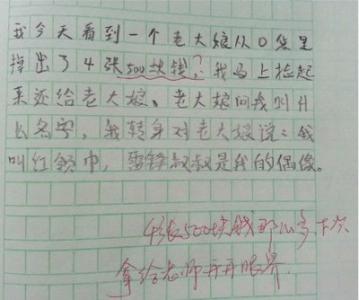 我今天看到一个老大娘从口袋里
掉出了4张500块钱,我马上捡起
来还给老大娘、老大娘问我叫什
么名字,我转身对老大娘说:我
叫红领巾,雷锋叔叔是我的偶像。
4张500块钱那么多,下次
拿给老师开开眼界.